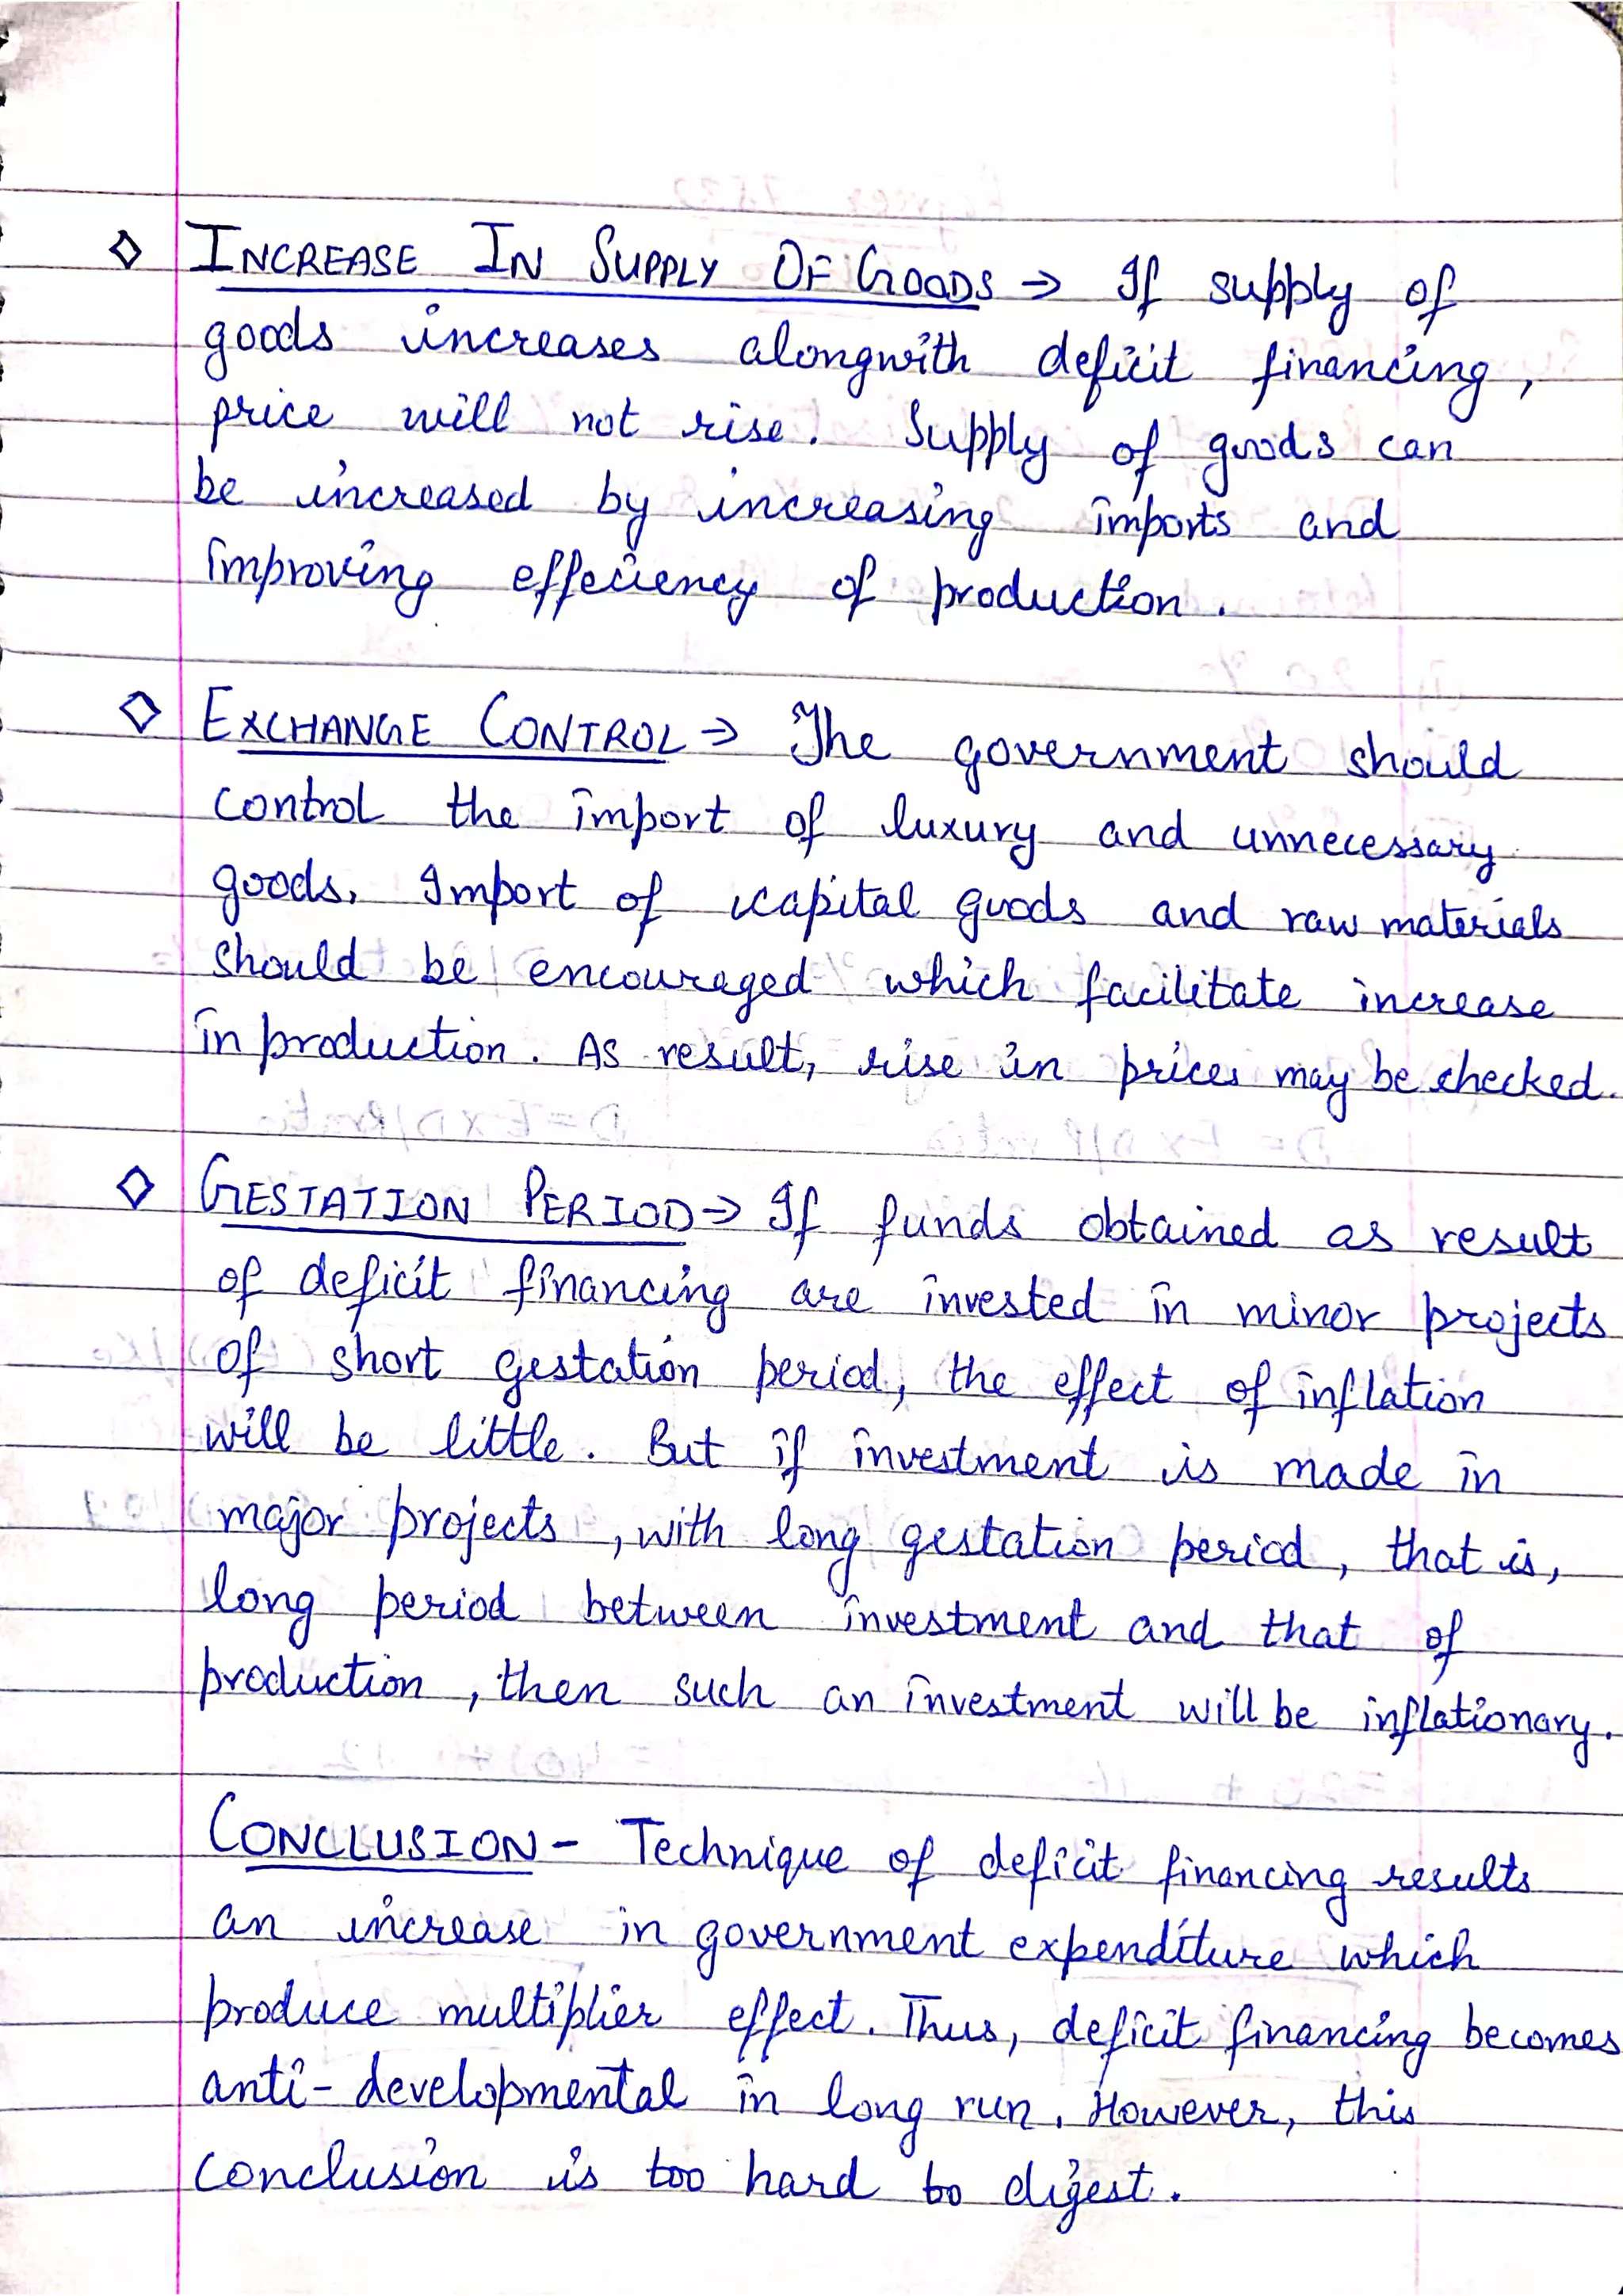 ◇ INCREASE IN SUPPLY OF GOODS → If supply of
goods increases alongwith deficit financing,
price will not rise. Supply of goods can
be increased by increasing imports and
improving effeciency of production.
◇ EXCHANGE CONTROL → The government should
control the import of luxury and unnecessary
goods. Import of capital goods and raw materials
should be encouraged which facilitate increase
in production. As result, rise in prices may be checked.
◇ GESTATION PERIOD → If funds obtained as result
of deficit financing are invested in minor projects
of short gestation period, the effect of inflation
will be little. But if investment is made in
major projects, with long gestation period, that is,
long period between investment and that of
production, then such an investment will be inflationary.
CONCLUSION - Technique of deficit financing results
an increase in government expenditure which
produce multiplier effect. Thus, deficit financing becomes
anti-developmental in long run. However, this
conclusion is too hard to digest.